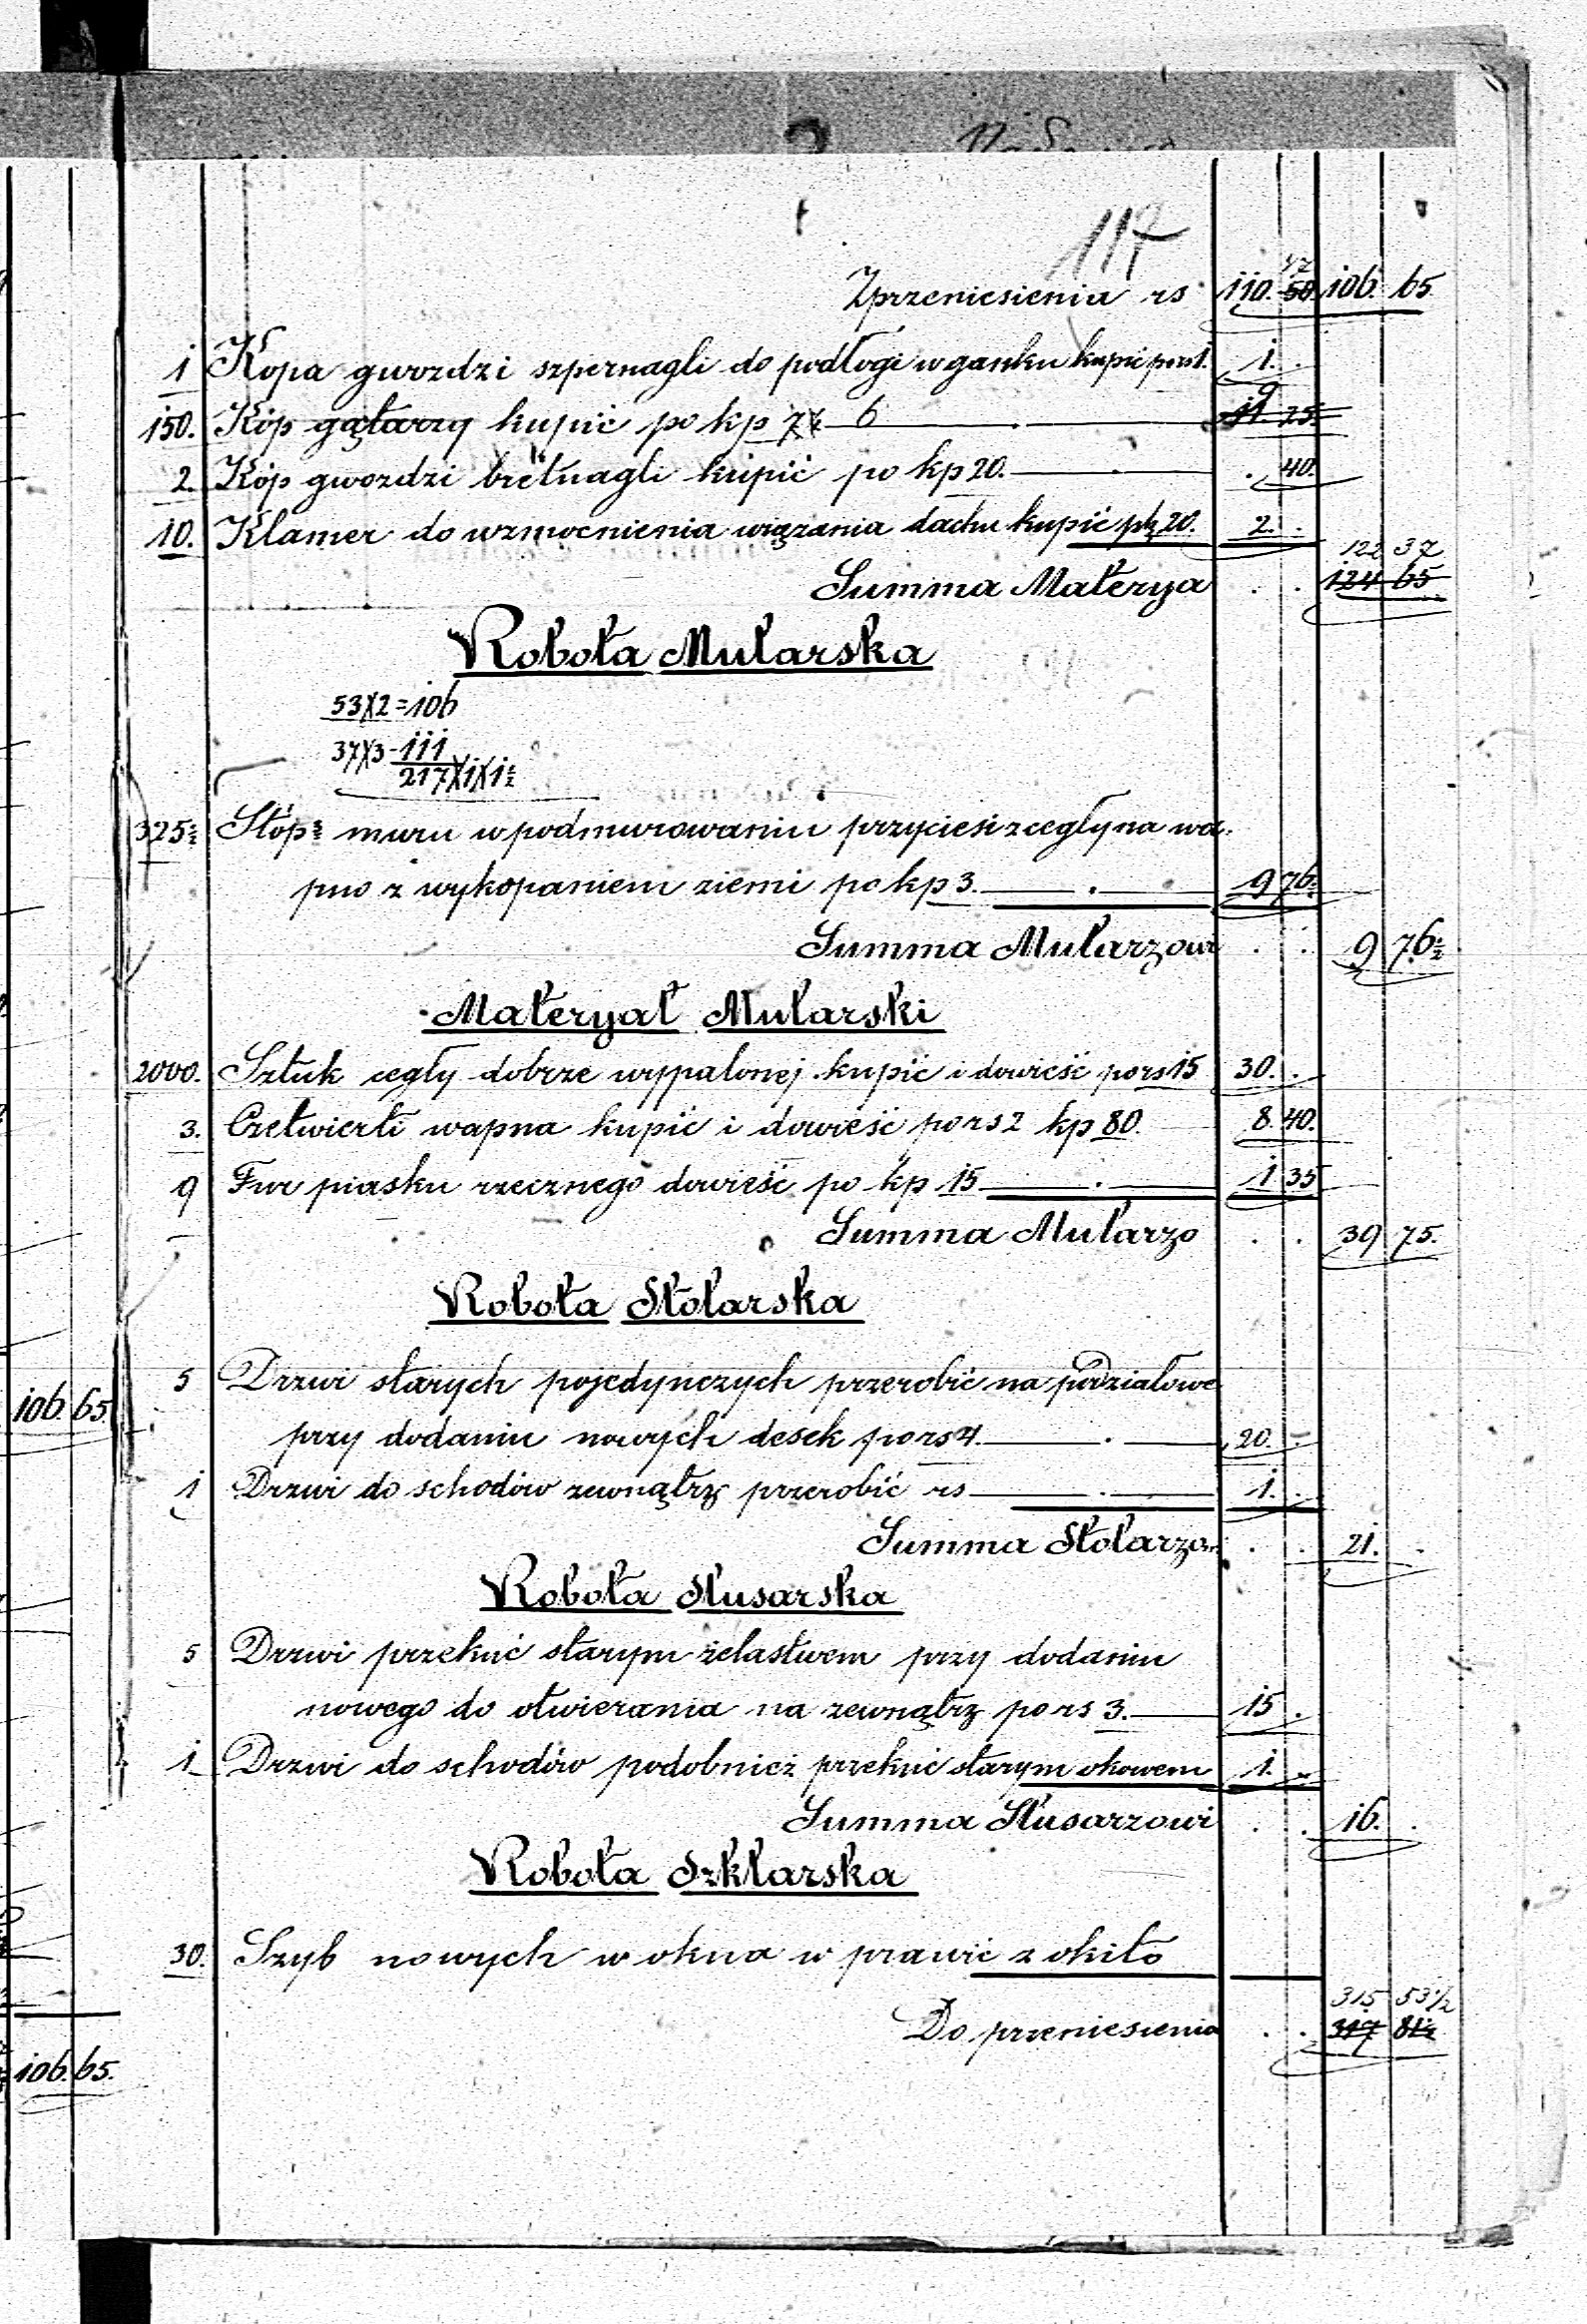 117
Zprzeniesienia rs 110. 47 50. 106. 65
1 Kopa gwozdzi szpernagli do podłogi w ganku kupić po rs 1. 1. .
150. Kóp gątarzy kupić po kp 7½ 6 — . — 9 11. 25.
2. Kóp gwozdzi bretnagli kupić po kp 20. — . — . 40.
10. Klamer do wzmocnienia wiązania dachu kupić pk 20. 2. .
122 37
Summa Materya . . 124 65
Robota Mularska
53X2=106
37X3-111
217X1X1½
325½ Stóp³ muru w podmurowaniu przyciesi z cegły na wa-
pno z wykopaniem ziemi po kp 3. — . — 9 76½
Summa Mularzowi . . 9 76½
Materyał Mularski
2000. Sztuk cegły dobrze wypalonej kupić i dowieść po rs 15 30. .
3. Czetwierti wapna kupić i dowieść po rs 2 kp 80. 8 40.
9 Fur piasku rzecznego dowieść po kp 15 — . — 1 35
Summa Mularzo . . 39 75.
Robota Stolarska
5 Drzwi starych pojedynczych przerobić na podziałowe
106. 65.
przy dodaniu nowych desek po rs 4. — . — 20. -
1 Drzwi do schodów zewnątrz przerobić rs — . — 1. .
Summa Stolarzow . . 21. .
Robota Slusarska
5 Drzwi przekuć starym żelastwem przy dodaniu
nowego do otwierania na zewnątrz po rs 3. — 15 .
1 Drzwi do schodów podobnież przekuć starym okowem 1. .
Summa Slusarzowi . . 16. .
Robota Szklarska
30. Szyb nowych w okna w prawić z okito
315 53½
Do przeniesienia . . 317 81½
106. 65.